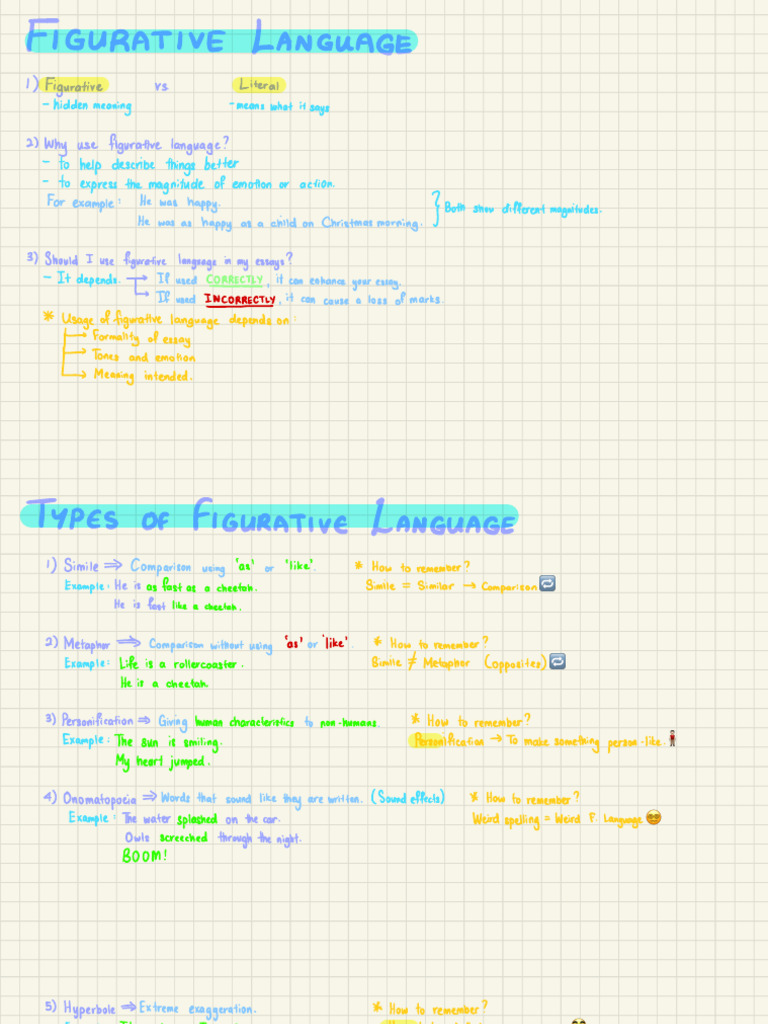 FIGURATIVE LANGUAGE
1) Figurative vs Literal
- hidden meaning - means what it says
2) Why use figurative language?
- To help describe things better
- to express the magnitude of emotion or action.
For example: He was happy.
He was as happy as a child on Christmas morning.
} Both show different magnitudes.
3) Should I use figurative language in my essays?
- It depends. → If used CORRECTLY, it can enhance your essay.
→ If used INCORRECTLY, it can cause a loss of marks.
* Usage of figurative language depends on:
→ Formality of essay
→ Tones and emotion
→ Meaning intended.
TYPES OF FIGURATIVE LANGUAGE
1) Simile ⇒ Comparison using 'as' or 'like'. * How to remember?
Example: He is as fast as a cheetah. Simile = Similar → Comparison 🔁
He is fast like a cheetah.
2) Metaphor ⇒ Comparison without using 'as' or 'like'. * How to remember?
Example: Life is a rollercoaster. Simile ≠ Metaphor (opposites) 🔁
He is a cheetah.
3) Personification ⇒ Giving human characteristics to non-humans. * How to remember?
Example: The sun is smiling. Personification → To make something person-like.
My heart jumped.
4) Onomatopoeia ⇒ Words that sound like they are written. (Sound effects) * How to remember?
Example: The water splashed on the car. Weird spelling = Weird F. Language
Owls screeched through the night.
BOOM!
5) Hyperbole ⇒ Extreme exaggeration. * How to remember?